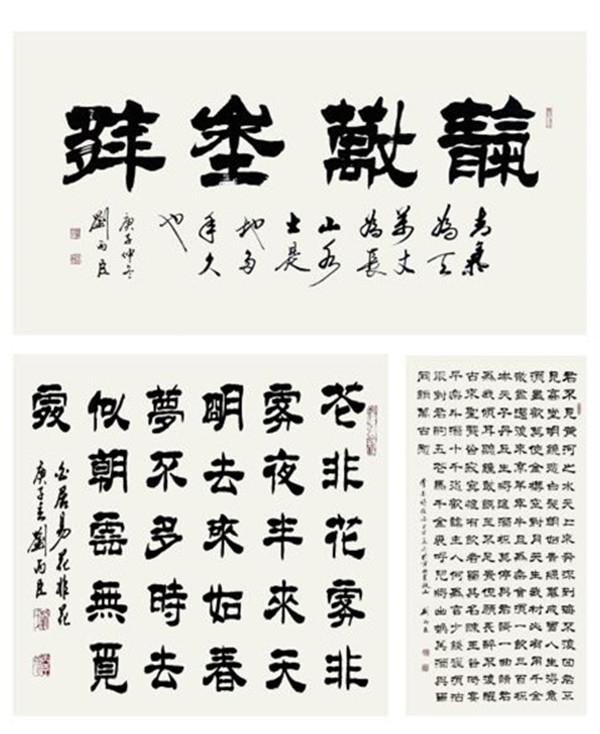 靝 埊
青氣
為天
萬丈
為長
山水
土是
地多
年久
也
庚子仲冬
劉
花非花霧非
霧夜半來天
明去來如春
夢不多時去
似朝雲無覓
處
白居易花非花
庚子冬劉
君不見黃河之水天上來奔流到海不復回君不
見高堂明鏡悲白髮朝如青絲暮成雪人生得意
須盡歡莫使金樽空對月天生我材必有用千金
散盡還復來烹羊宰牛且爲樂會須一飲三百杯
岑夫子丹丘生將進酒杯莫停與君歌一曲請君
爲我傾耳聽鐘鼓饌玉不足貴但願長醉不復醒
古來聖賢皆寂寞惟有飲者留其名陳王昔時宴
平樂斗酒十千恣歡謔主人何爲言少錢徑須沽
取對君酌五花馬千金裘呼兒將出換美酒與爾
同銷萬古愁